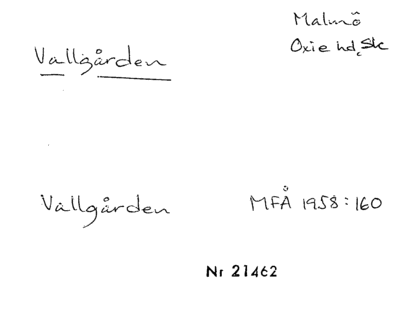 Malmö
Vallgården
Oxie hd, Sk
Vallgården
MFÅ 1958:160
Nr 21462